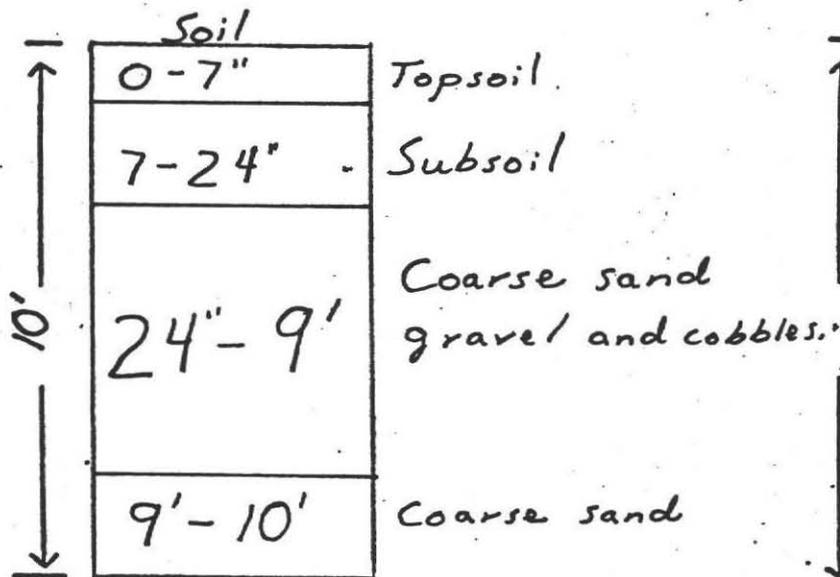 Soil
0-7" Topsoil.
7-24" Subsoil
24"- 9' Coarse sand
gravel and cobbles.
9'-10' Coarse sand
10'